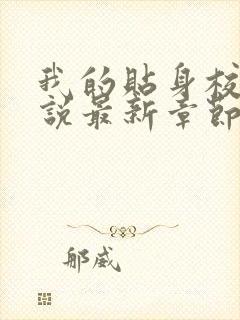 我的貼身校
說最新章節
郍威